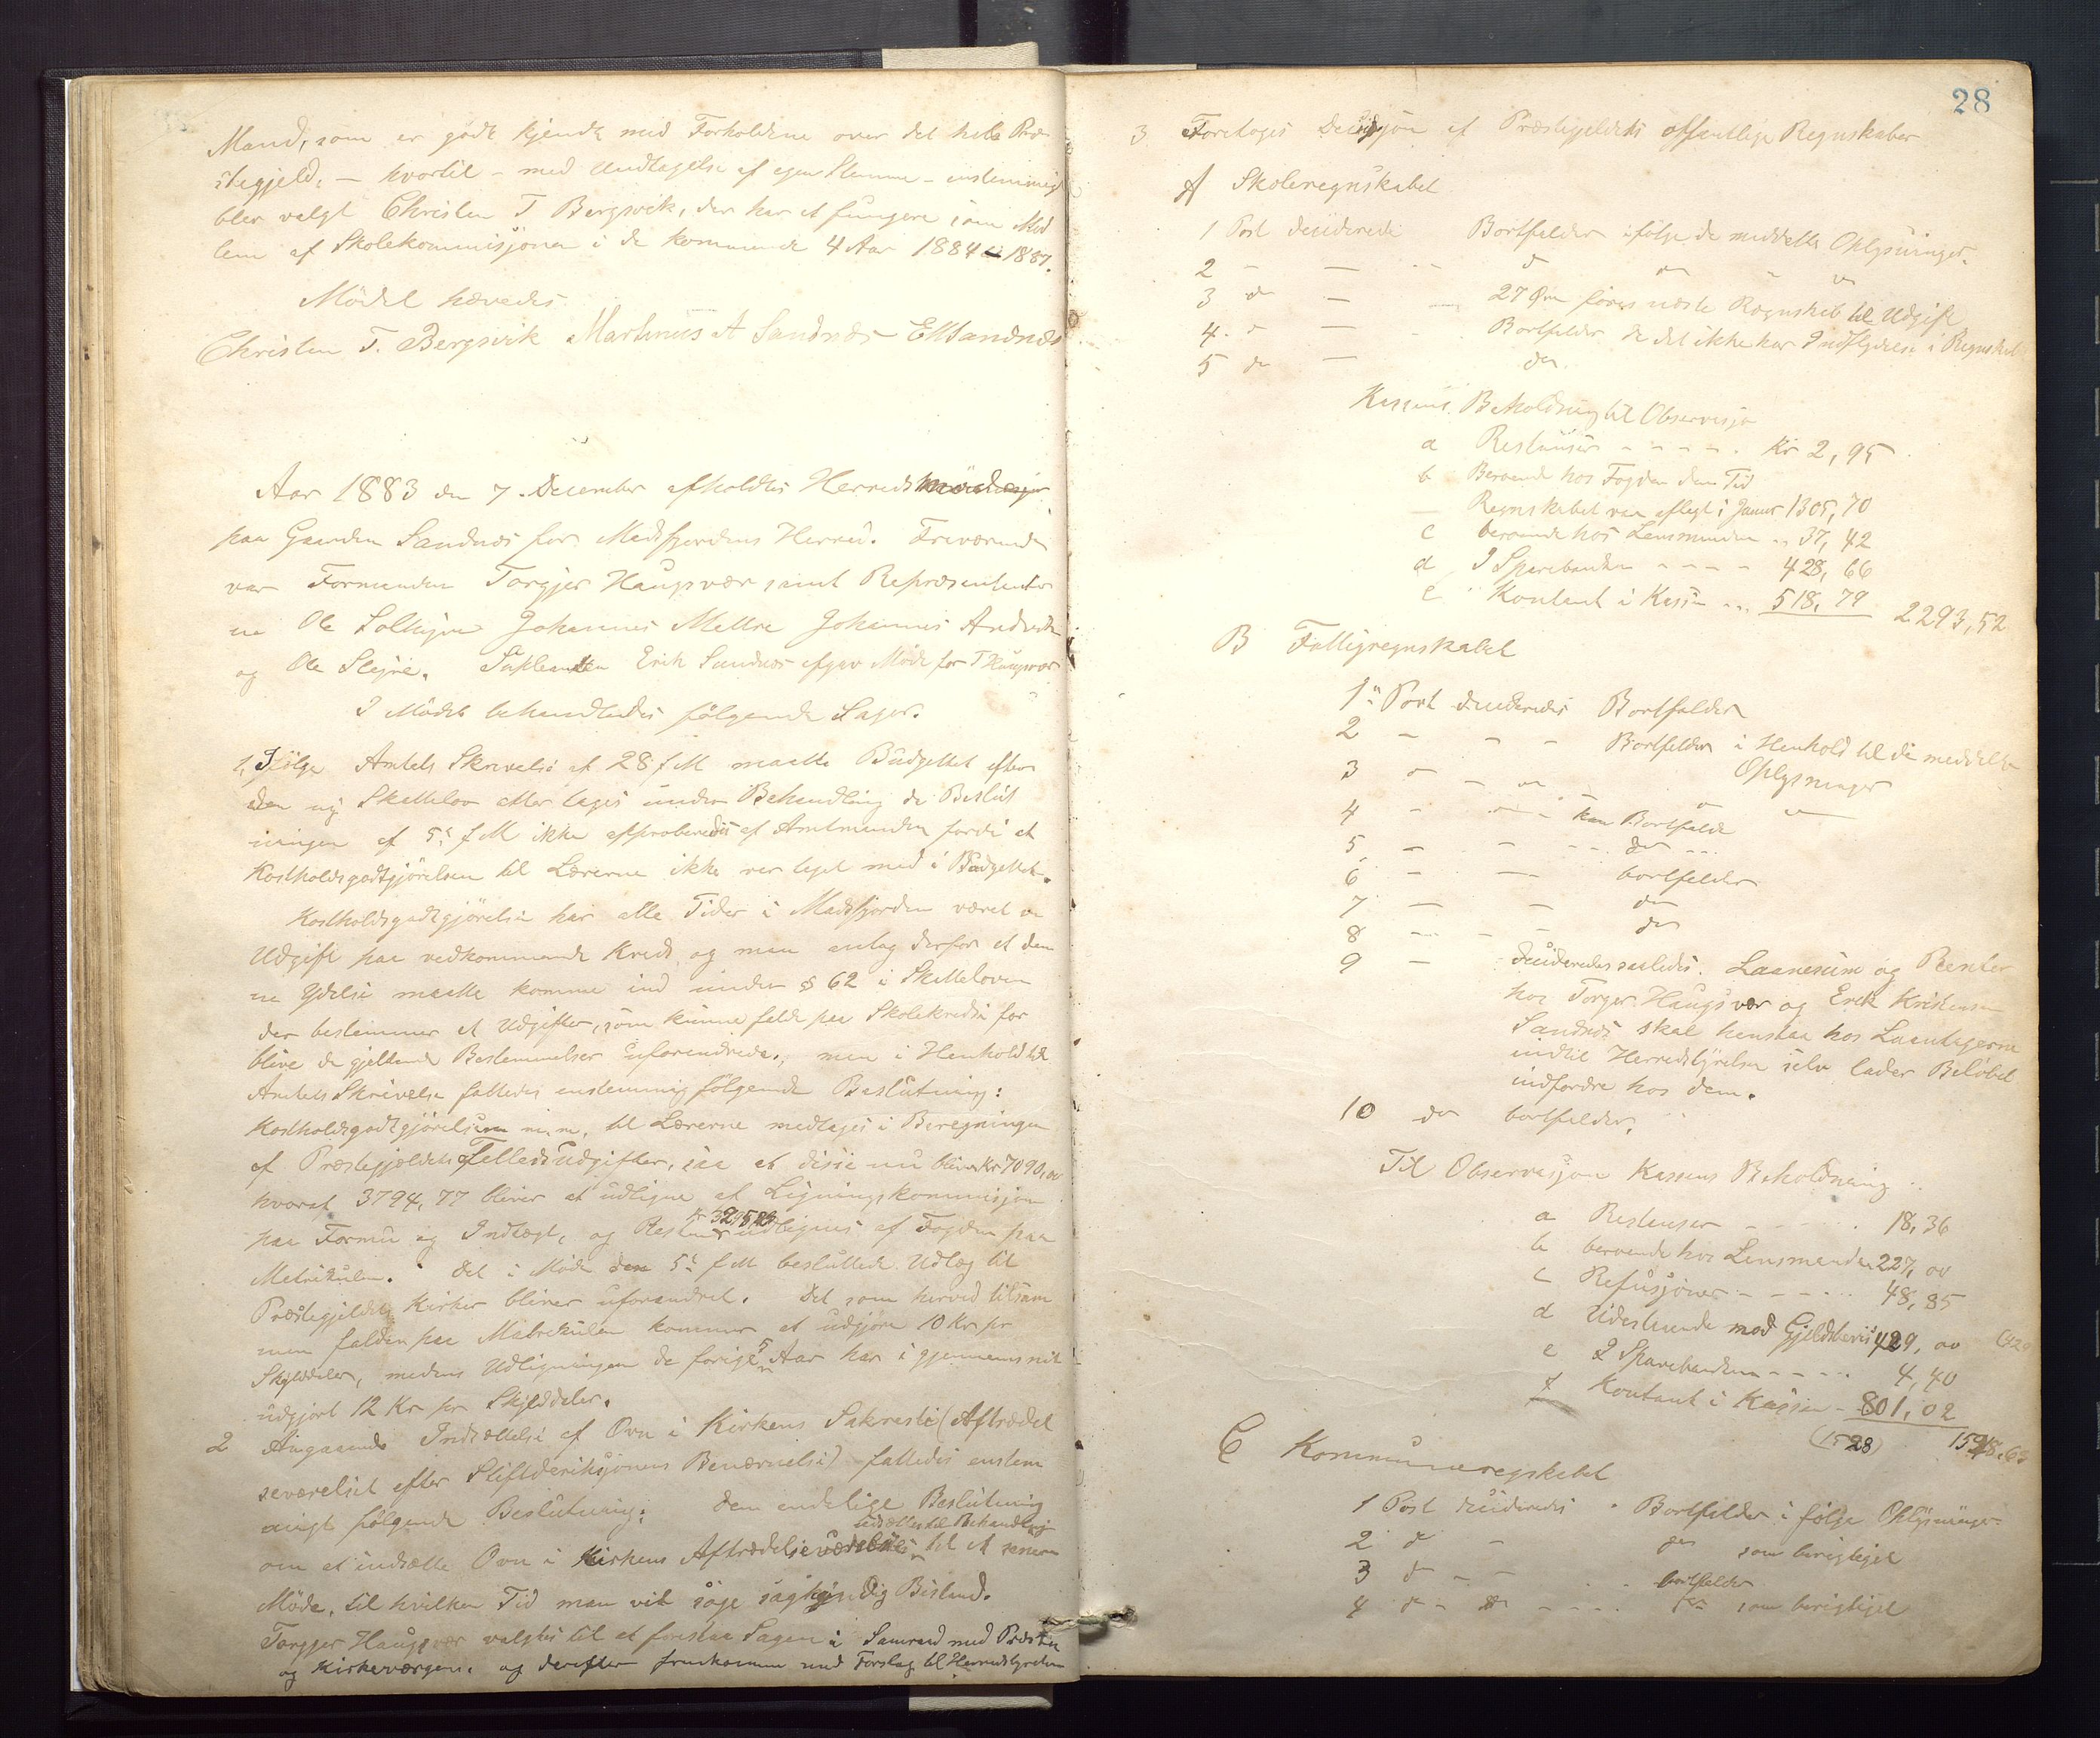 Mand, som er godt kjendt med Forholdene over det hele Præ-
stegjeld, — hvortil – med Undtagelse af egen Stemme – enstemmigt
blev valgt Christen T Bergsvik, der har at fungere som Med
lem af Skolekommisjonen i de kommende 4 Aar 1884 – 1887.
Mödet hævedes
Christen T. Bergsvik Martinus A Sandnæs E Sandnæs
Aar 1883 den 7. December afholdtes Herreds
paa Gaarden Sandnæs for Masfjordens Herred. Fraværende
var Formanden Torgjer Haugsvær samt Repræsentanter
ne Ole Solheim Johannes Mattre Johannes Andvik
og Ole Steine. Suplanten Erik Sandnæs afgav Möde for T Haugsvær
I Mödet behandledes fölgende Sager.
1, Ifölge Amtets Skrivelse af 28 f M maatte Budgettet efter
den ny Skattelov atter tages under Behandling da Beslut
ningen af 5te f M ikke approberedes af Amtmanden fordi at
Kostholdsgodtgjörelsen til Lærerne ikke var taget med i Budgettet.
Kostholdsgodtgjörelse har alle Tider i Masfjorden været en
Udgift paa vedkommende Kreds og man antog derfor at den
ne Ydelse maatte komme ind under § 62 i Skatteloven
der bestemmer at Udgifter, som kunne falde paa Skolekredse for
blive de gjeldende Bestemmelser uforandrede., men i Henhold til
Amtets Skrivelse fattedes enstemmig fölgende Beslutning:
Kostholdsgodtgjörelsen m.m. til Lærerne medtages i Beregningen
af Præstegjeldets Fælledsudgifter, saa at disse nu bliver Kr 7090,00
hvoraf 3794,77 bliver at udligne af Ligningskommisjon
paa Formue og Indtægt, og Resten Kr 3295,23 udlignes af Fogden paa
Matrikulen. Det i Möde den 5te f M besluttede Udlæg til
Præstegjeldets Kirker bliver uforandret. Det som herved tilsam
men falder paa Matrikulen kommer at udgjöre 10 Kr pr
Skylddaler, medens Udligningen de forige 5 Aar har i gjennemsnit
udgjort 12 Kr pr Skylddaler.
2 Angaaende Indsættelse af Ovn i Kirkens Sakresti (Aftrædel
seværelset efter Stiftdireksjonens Benævnelse) fattedes enstem
migt fölgende Beslutning: Den endelige Beslutning
om at indsætte Ovn i Kirkens Aftrædelseværelse udsættes til Behandling til et senere
Möde, til hvilken Tid man vil söge sagkyndig Bistand.
Torgjer Haugsvær valgtes til at forestaa Sagen i Samraad med Præsten
og Kirkeværgen. og derefter fremkomme med Forslag til Herredstyrelsen
28
3 Foretoges Desisjon af Præstegjeldets offentlige Regnskaber
A Skoleregnskabet
1 Post desiderede Bortfalder ifölge de meddelte Oplysninger.
2 – — – do do – do
3 do — 27 Öre föres næste Regnskab til Udgift
4. do — Bortfalder da det ikke har Indflydelse i Regnskabet
5 do — do.
Kassens Beholdning til Observasjon
a Restanser - - - - - Kr 2,95
b Beroende hos Fogden den Tid
Regnskabet var aflagt i Januar 1305,70
c beroende hos Lensmanden .. 37,42
d I Sparebanken - - - - 428,66
e Kontant i Kassen ... 518,79 2293,52
B Fattigregnskabet
1te Post desideredes Bortfalder
2 – – – Bortfalder i Henhold til de meddelte
3 do – do Oplysninger
4 – – – kan Bortfalde do
5 – – – do
6 – — bortfalder
7 — – do
8 – – – do
9 – desideredes saaledes. Laanesum og Renter
hos Torger Haugsvær og Erik Kristensen
Sandnæs skal henstaa hos Laantagerne
indtil Herredstyrelsen selv lader Belöbet
indfordre hos dem.
10 do bortfalder.
Til Observasjon Kassens Beholdning
a Restanser - - - - - 18,36
b beroende hos Lensmanden 227,00
c Refusjoner - - - - - 48,85
d Udestaaende mod Gjeldsbevis 429,00 (429
e I Sparebanken - - - - 4,40
f Kontant i Kassen - 801,02
(1528) 1528,63
C Kommuneregskabet
1 Post desideredes Bortfalder i fölge Oplysninger
2 do – do som berigtiget
3 do – – bortfalder
4 do – do - - - - do som berigtiget